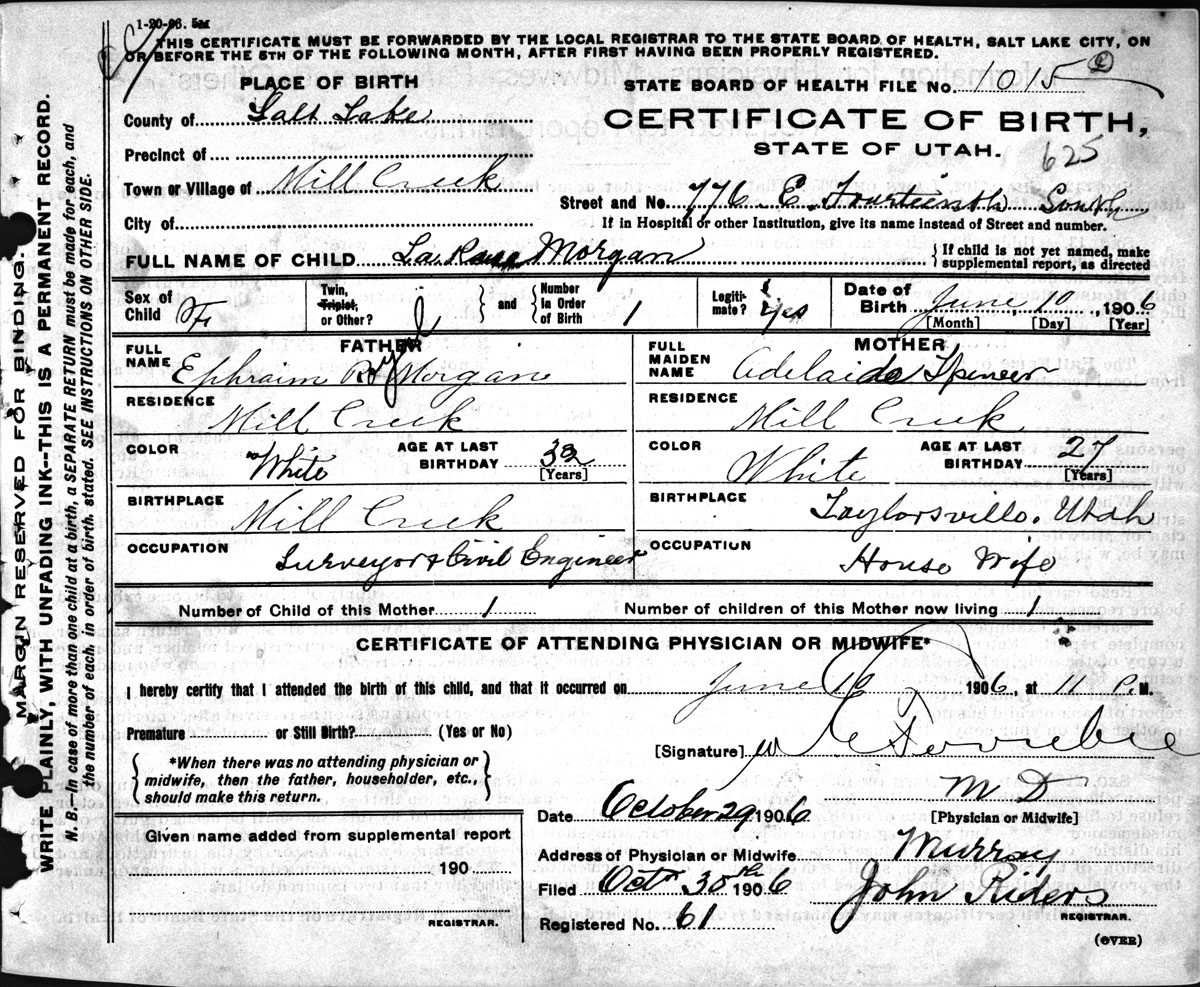 1-20-06. 5M
THIS CERTIFICATE MUST BE FORWARDED BY THE LOCAL REGISTRAR TO THE STATE BOARD OF HEALTH, SALT LAKE CITY, ON
OR BEFORE THE 5TH OF THE FOLLOWING MONTH, AFTER FIRST HAVING BEEN PROPERLY REGISTERED.
PLACE OF BIRTH
STATE BOARD OF HEALTH FILE No. 1015
County of Salt Lake
CERTIFICATE OF BIRTH,
STATE OF UTAH.
625
Precinct of
Town or Village of Mill Creek
Street and No. 776 E. Fourteenth South
City of
If in Hospital or other Institution, give its name instead of Street and number.
FULL NAME OF CHILD La Morgan
{If child is not yet named, make
supplemental report, as directed
Sex of Child F.
Twin, Triplet, or Other?
and
Number in Order of Birth 1
Legitimate? Yes
Date of Birth June, 10, 1906
[Month] [Day] [Year]
FATHER
FULL NAME Ephraim Morgan
RESIDENCE Mill Creek
COLOR White
AGE AT LAST BIRTHDAY 32
[Years]
BIRTHPLACE Mill Creek
OCCUPATION Surveyor & Civil Engineer
MOTHER
FULL MAIDEN NAME Adelaide Spencer
RESIDENCE Mill Creek
COLOR White
AGE AT LAST BIRTHDAY 27
[Years]
BIRTHPLACE Taylorsville, Utah
OCCUPATION House Wife
Number of Child of this Mother 1
Number of children of this Mother now living 1
CERTIFICATE OF ATTENDING PHYSICIAN OR MIDWIFE*
I hereby certify that I attended the birth of this child, and that it occurred on June 10 1906, at 11 P.M.
Premature or Still Birth? (Yes or No)
[Signature]
M D
[Physician or Midwife]
{*When there was no attending physician or
midwife, then the father, householder, etc.,
should make this return.}
Date October 29 1906
Given name added from supplemental report
190
REGISTRAR.
Address of Physician or Midwife Murray
Filed Oct 30th 1906
John Riders
REGISTRAR.
Registered No. 61
(OVER)
MARGIN RESERVED FOR BINDING.
WRITE PLAINLY, WITH UNFADING INK--THIS IS A PERMANENT RECORD.
N. B.--In case of more than one child at a birth, a SEPARATE RETURN must be made for each, and
the number of each, in order of birth, stated. SEE INSTRUCTIONS ON OTHER SIDE.